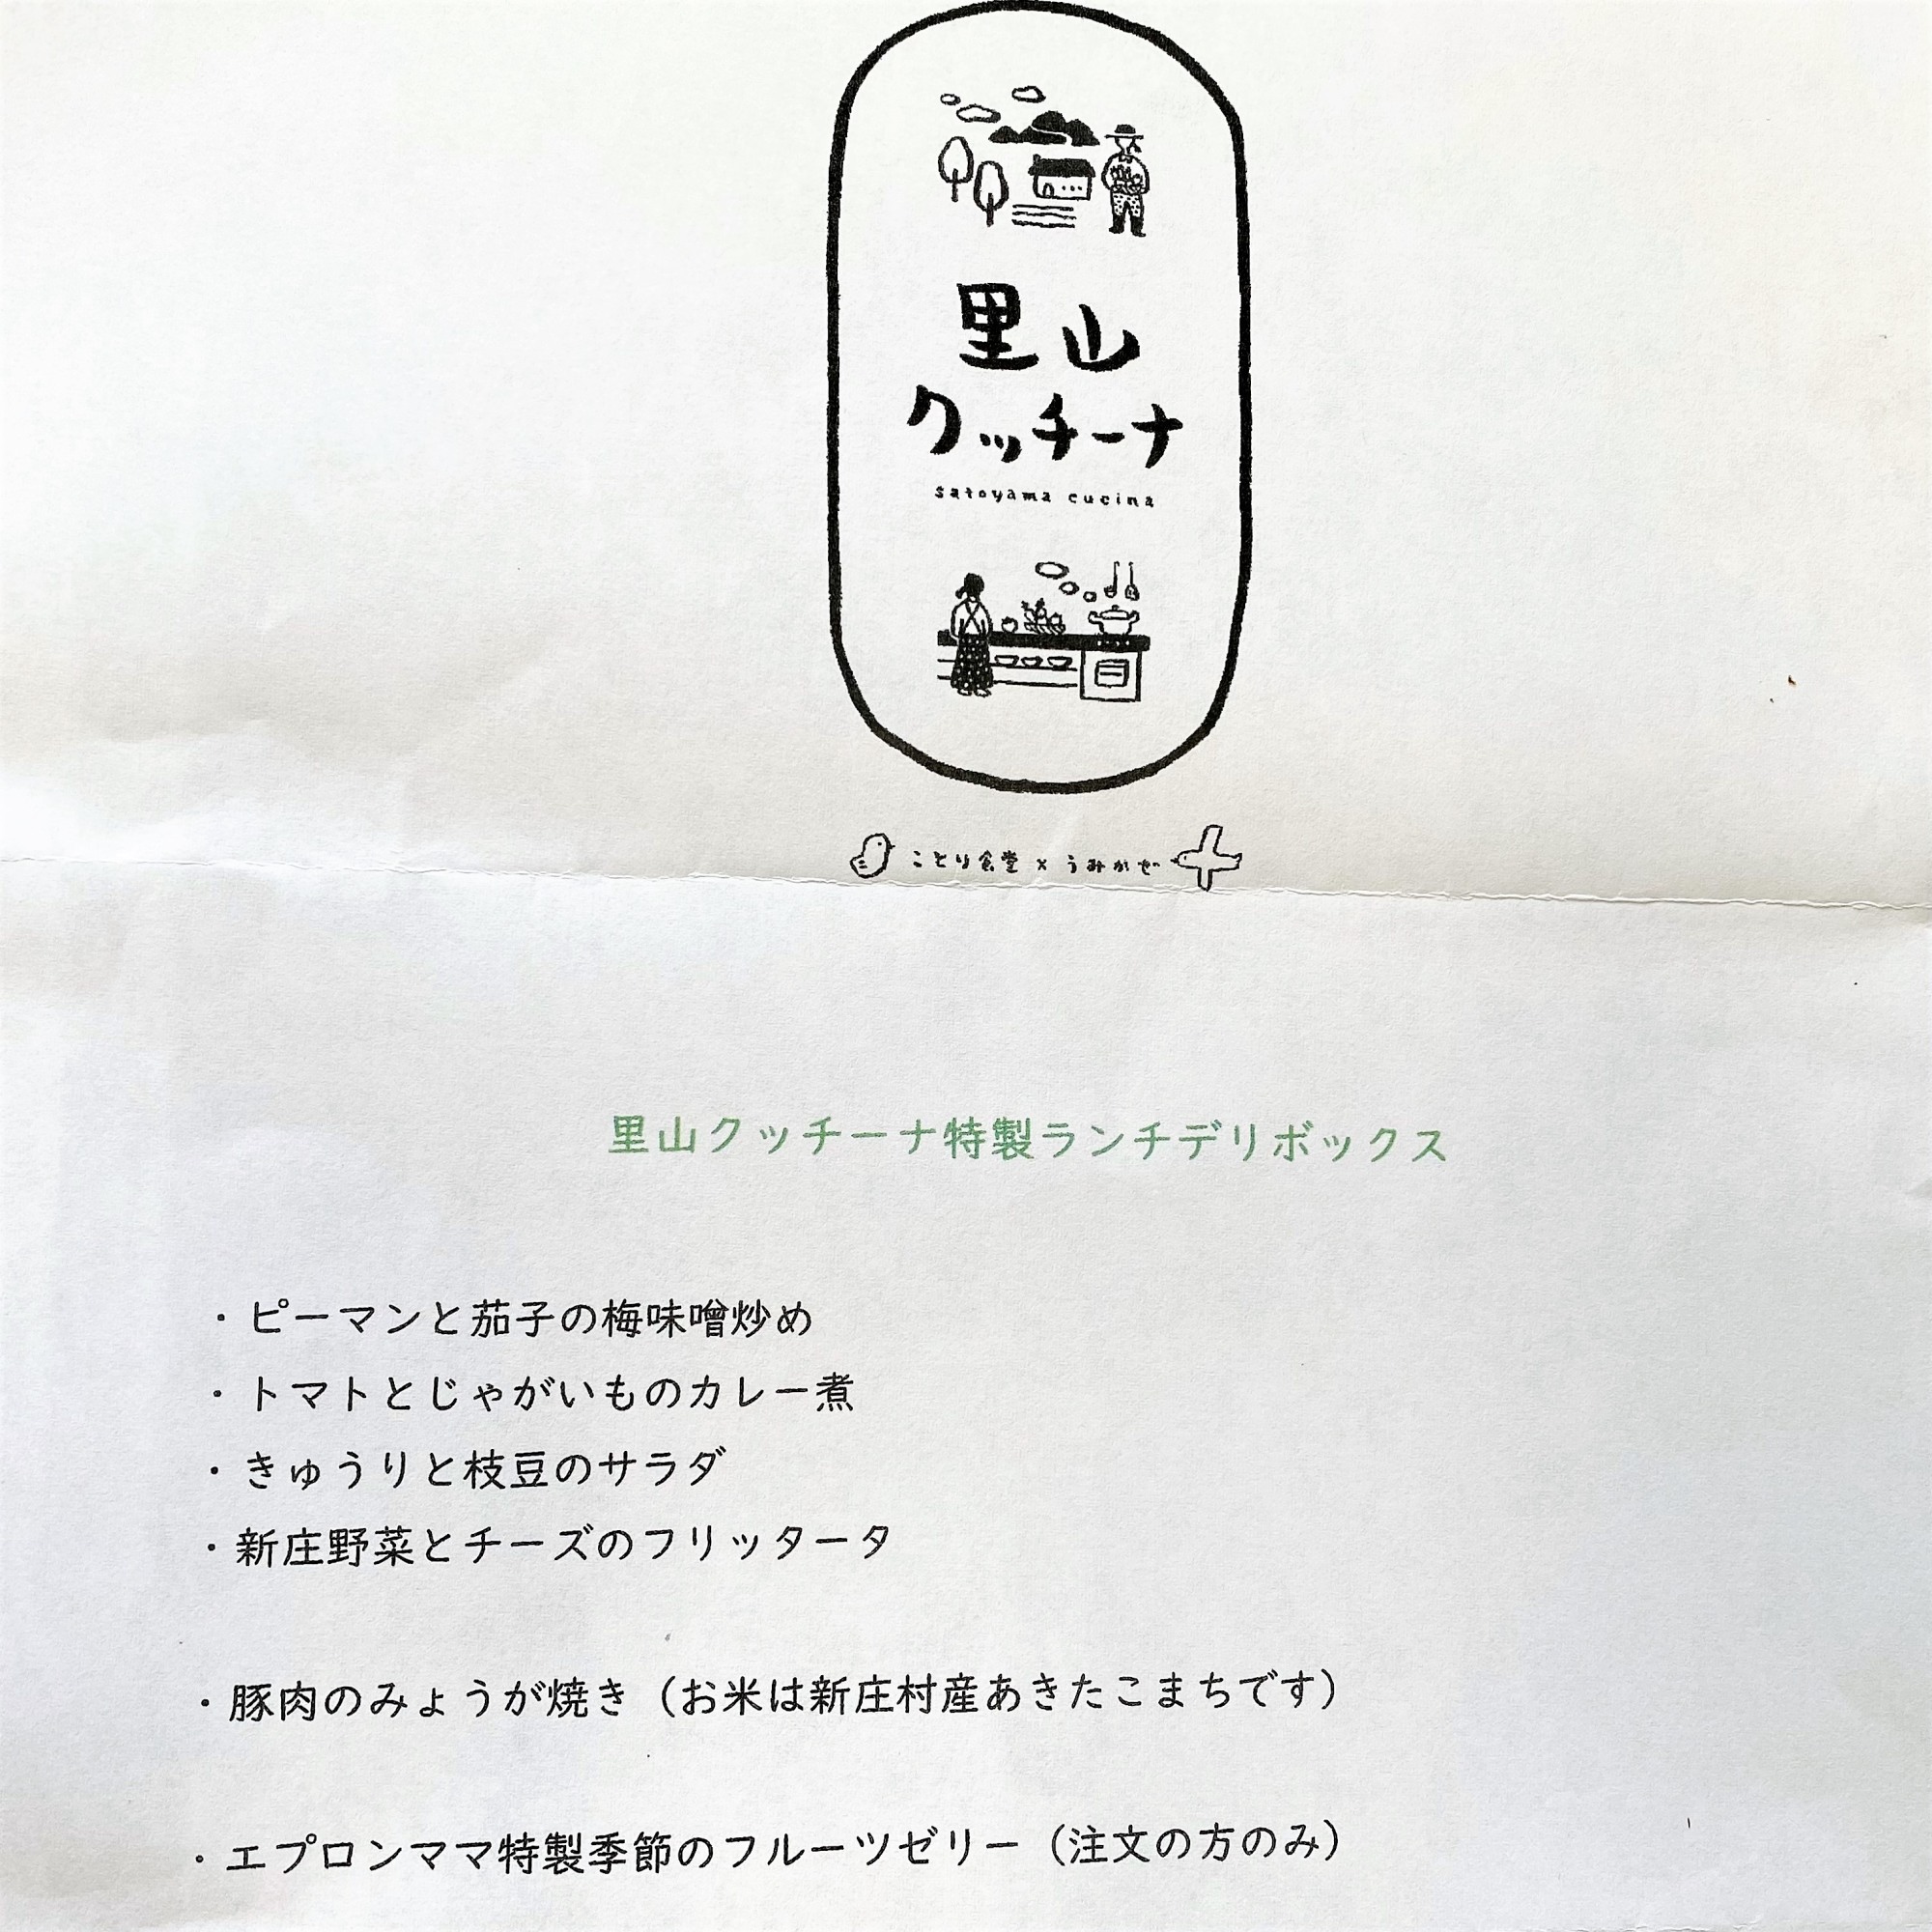 里山
クッチーナ
satoyama cucina
ことり食堂 × うみかぜ
里山クッチーナ特製ランチデリボックス
・ピーマンと茄子の梅味噌炒め
・トマトとじゃがいものカレー煮
・きゅうりと枝豆のサラダ
・新庄野菜とチーズのフリッタータ
・豚肉のみょうが焼き（お米は新庄村産あきたこまちです）
・エプロンママ特製季節のフルーツゼリー（注文の方のみ）